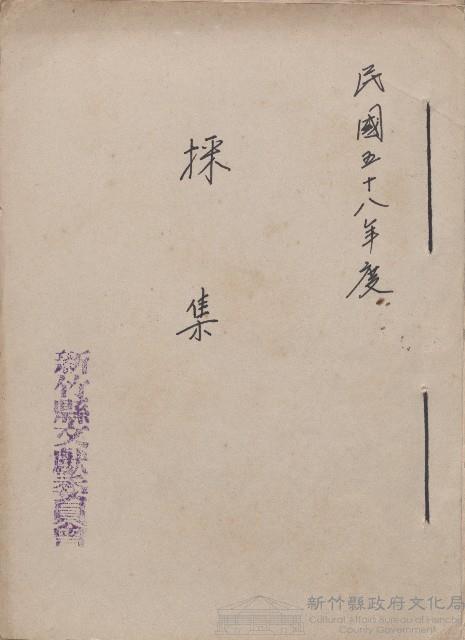 民國五十八年度
採集
新竹縣文獻委員會
新竹縣政府文化局
Cultural Affairs Bureau of Hsinchu
County Government